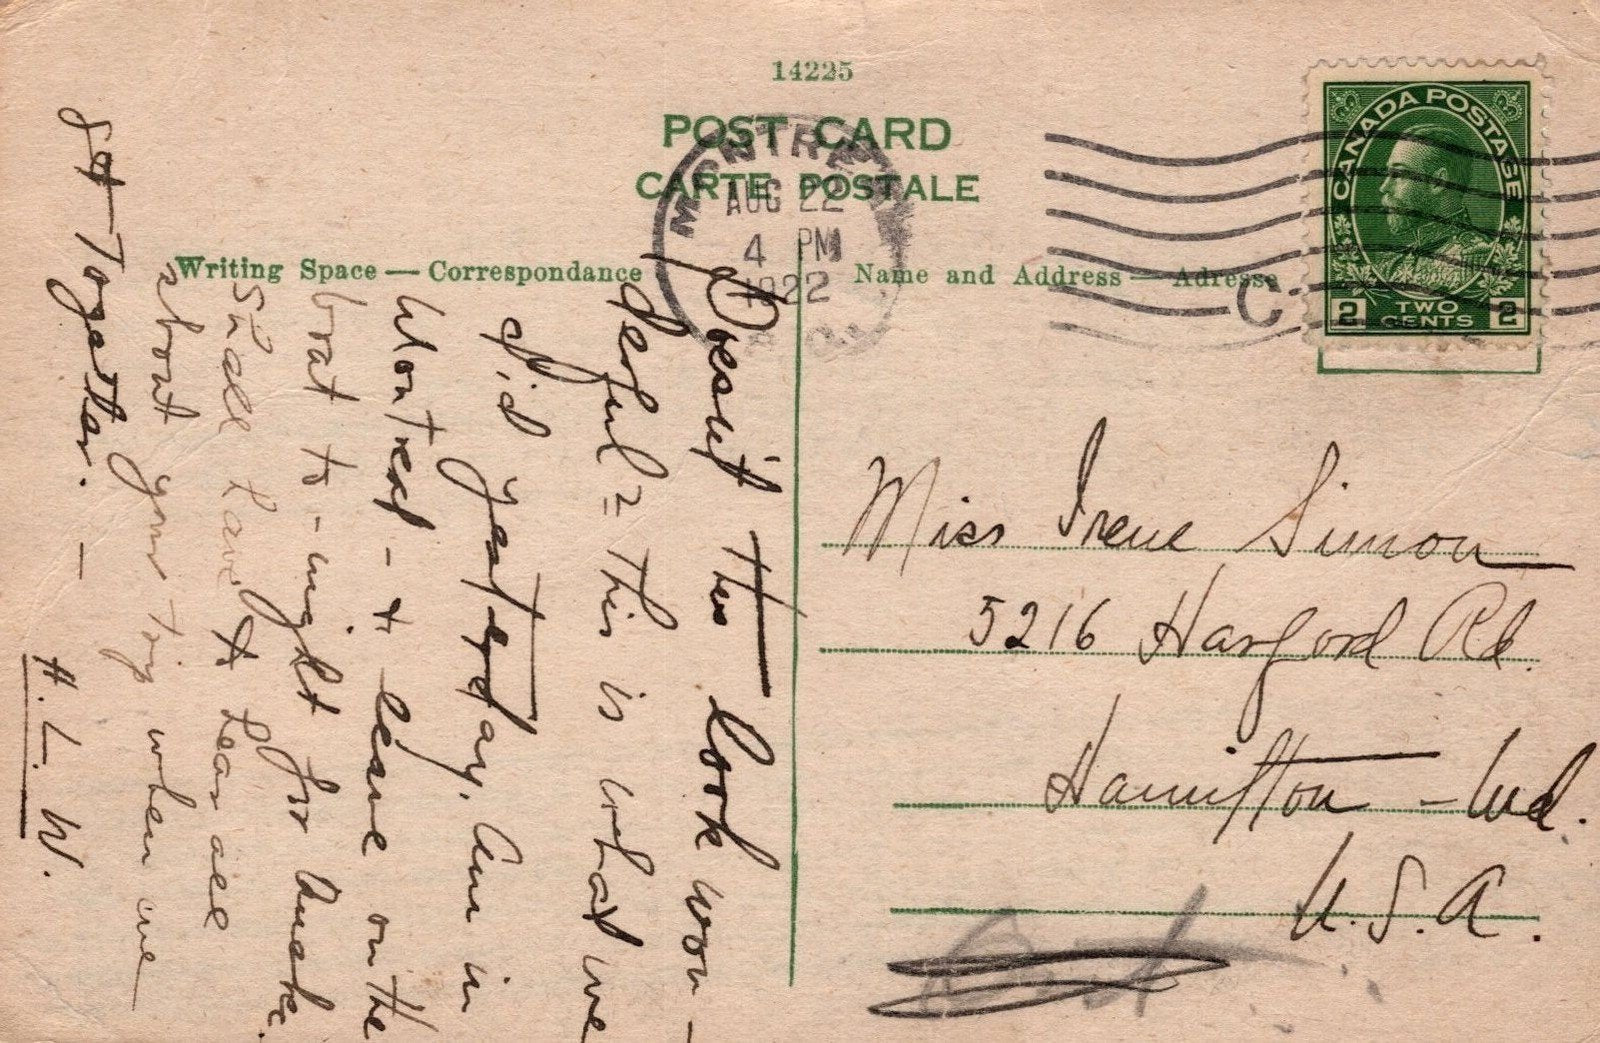 14225
POST CARD
CARTE POSTALE
MONTREAL
AUG 22
4 PM
1922
CANADA POSTAGE
2 TWO CENTS 2
C
Writing Space — Correspondance
Name and Address — Adresse
Doesn't this look won-
derful = This is what we
did yesterday. Am in
Montreal - + leave on the
boat to-night for
Shall have to hear all
about your trip when we
get together. —
H. L. W.
Miss Irene Simon
5216 Harford Rd.
Hamilton - Md.
U. S. A.